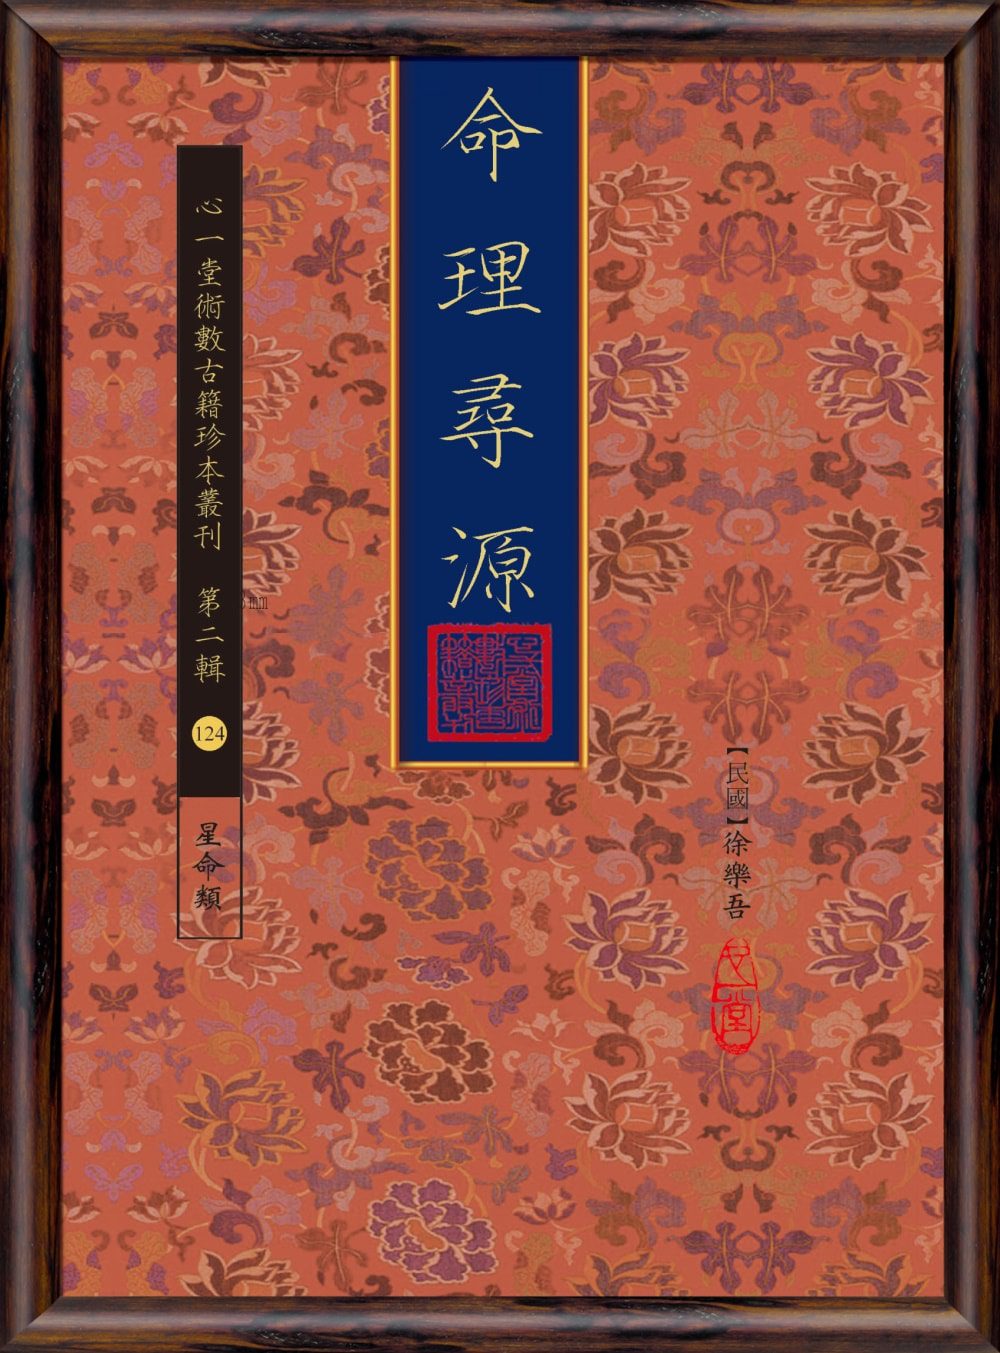 命理尋源
【民國】徐樂吾
心一堂術數古籍珍本叢刊 第二輯
124
星命類
mm